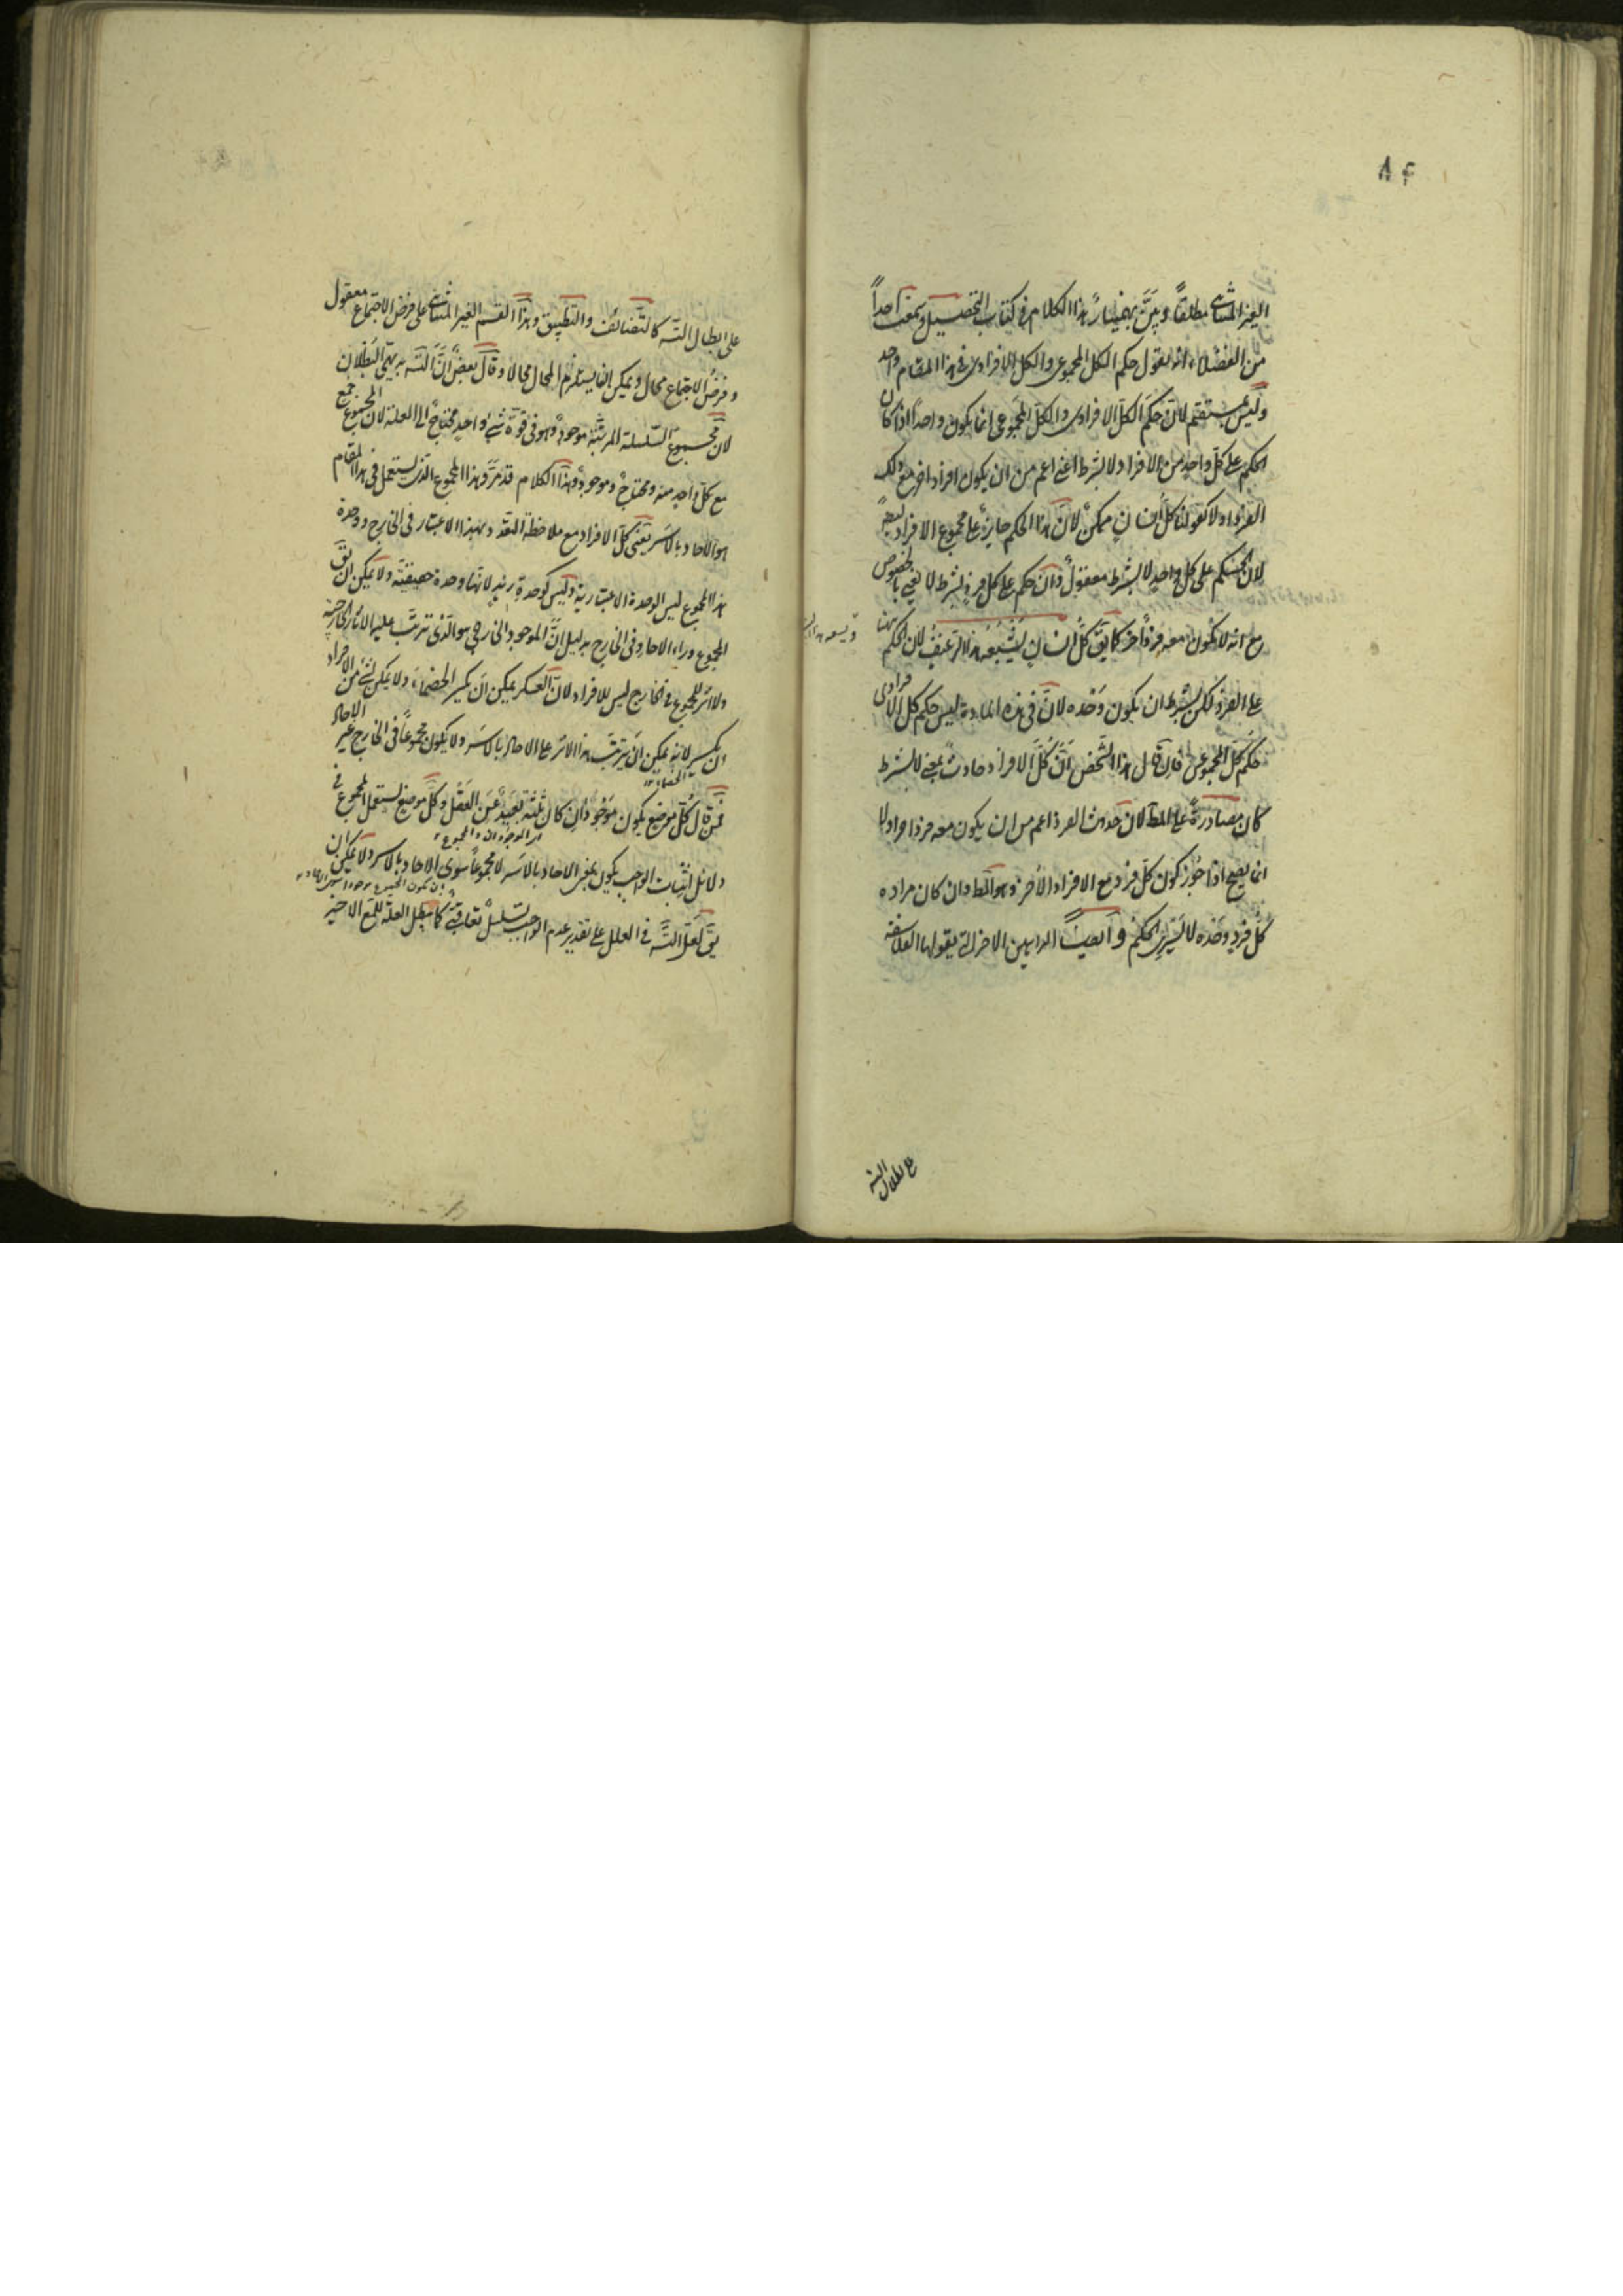 ٨٤
الغیر المتناهی مطلقاً وبیّن بهمنیار هذا الکلام فی کتاب التحصیل وسمعت احداً
من الفضلاء انه یقول حکم الکل المجموعی والکل الافرادی فی هذا المقام واحد
ولیس بمستقیم لانّ حکم الکل الافرادی والکل المجموعی انما یکون واحداً اذا کان
الحکم علی کلّ واحدٍ من الافراد لا بشرط اعنی اعم من ان یکون افراد اخر مع ذلک
الفرد او لا کقولنا کلّ انسانٍ ممکنٌ لانّ هذا الحکم جایزٌ علی مجموع الافراد ایضاً
لانّ الحکم علی کل واحدٍ لا بشرط معقولٌ وان حکم علی کل فردٍ بشرط لا یعنی بالخصوص
مع انه لا یکون معه فرداً آخر کما یقّ کلّ انسانٍ یُشبعُه هذا الرغیفُ لانّ الحکم ههنا
علی الفرد لکن بشرط ان یکون وَحْده لانّ فی هذه المادة لیس حکم کل الافرادی
حکم کل المجموعی فان قال هذا الشخص انّ کُلَّ الافراد حادثٌ بمعنی لا بشرط
کان مصادرةً علی المط لان حدوث الفرد اعم من ان یکون معه فرداً آخر او لا
انما یصح اذا جُوّز کون کلّ فرد مع الافراد الأخر وهو المط وان کان مراده
کلُّ فردٍ وحْدَه لا یَسْری الحکمُ وایضاً البراهین الاخر التی یقولها الفلاسفة
علی بطلان التسه
علی ابطال التسه کالتّضائف والتطبیق وهذا القسم الغیر المتناهی علی فرض الاجتماع معقول
وفرضُ الاجتماع محال ویمکن ان یستلزم المحال محالا وقال بعضٌ انّ التسه بدیهیّ البطلان
لانّ مجموع السّلسلة المرتّبة موجودٌ وهو فی قوّة شیءٍ واحدٍ محتاجٌ الی العلة لانّ المجموع جمع
مع کلّ واحدٍ منه ومحتاجٌ وموجودٌ وهذا الکلام قد مرّ وهذا المجموع الّذی یستعمل فی هذا المقام
هو الآحاد بالاسر یعنی کلّ الافراد مع ملاحظة التعدد وبهذا الاعتبار فی الخارج ووحدة
هذا المجموع لیس الوحدة الاعتباریة ولیس کوحدة زید لانّها وحدة حقیقیّة ولا یمکن ان یقّ
المجموع وراء الآحاد فی الخارج بدلیل انّ الموجود الخارجی هو الّذی تترتّب علیه الآثار الخارجیّة
ولا اثر للمجموع فی الخارج لیس للافراد لانّ العسکر یمکن ان یکسر الخصماء ولا یمکن لشیء من الافراد
ان یکسر لانه یمکن ان یترتّب هذا الاثر علی الآحاد بالاسر ولا یکون مجموعاً فی الخارج غیر الآحاد
فمن قال کُلّ موضع یکون موجودان کان ثلثة بعیدٌ عن العقل وکلّ موضع یستعمل المجموع فی
هما الموجودان والمجموع
دلائل اثبات الواجب یکون بمعنی الآحاد بالاسر لا مجموعاً سوی الآحاد بالاسر ولا یمکن ان
یقّ لعلّ التسه فی العلل علی تقدیر عدم الواجب تسلسلٌ تعاقبیّ کما یبطل العلّة للمع الاخیر